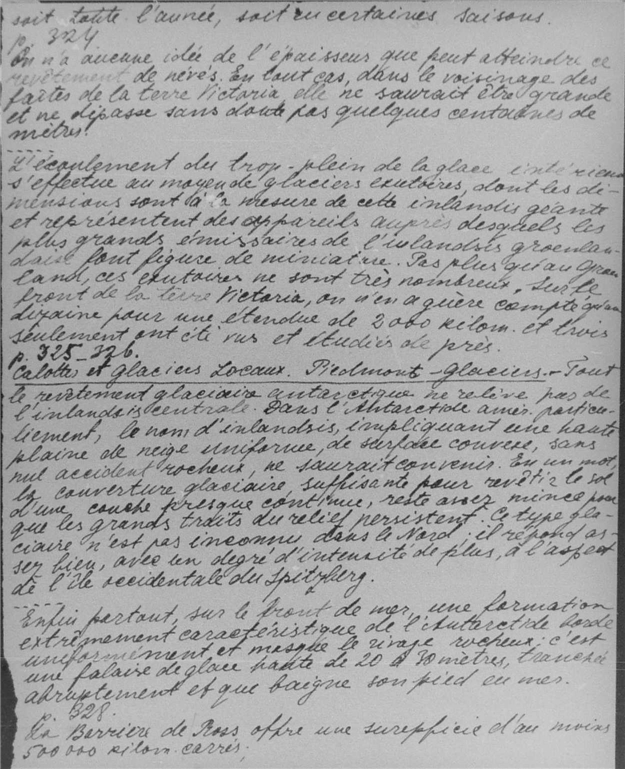 soit toute l'année, soit en certaines saisons.
p. 324
On n'a aucune idée de l'épaisseur que peut atteindre ce
revêtement de névés. En tout cas, dans le voisinage des
faîtes de la terre Victoria, elle ne saurait être grande
et ne dépasse sans doute pas quelques centaines de
mètres!
L'écoulement du trop-plein de la glace intérieure
s'effectue au moyen de glaciers exutoires, dont les di-
mensions sont à la mesure de cette inlandis géante
et représentent des appareils auprès desquels les
plus grands émissaires de l'inlandsis groenlan-
dais font figure de miniature. Pas plus qu'au Groen-
land, ces exutoires ne sont très nombreux. Sur le
front de la terre Victoria, on n'en a guère compté qu'une
dizaine pour une étendue de 2000 kilom. et trois
seulement ont été vus et étudiés de près.
p. 325-326.
Calottes et glaciers Locaux. Piedmont-glaciers.- Tout
le revêtement glaciaire antarctique ne relève pas de
l'inlandsis centrale. Dans l'Antarctide amér. particu-
lièrement, le nom d'inlandsis, impliquant une haute
plaine de neige uniforme, de surface convexe, sans
nul accident rocheux, ne saurait convenir. En un mot,
la couverture glaciaire, suffisante pour revêtir le sol
d'une couche presque continue, reste assez mince pour
que les grands traits du relief persistent. Ce type gla-
ciaire n'est pas inconnu dans le Nord; il répond as-
sez bien, avec un degré d'intensité de plus, à l'aspect
de l'île occidentale du Spitzberg.
Enfin partout, sur le front de mer, une formation
extrêmement caractéristique de l'Antarctide borde
uniformément et masque le rivage rocheux; c'est
une falaise de glace haute de 20 à 30 mètres, tranchée
abruptement et que baigne son pied en mer.
328.
La Barrière de Ross offre une surepficie d'au moins
500000 kilom. carrés;